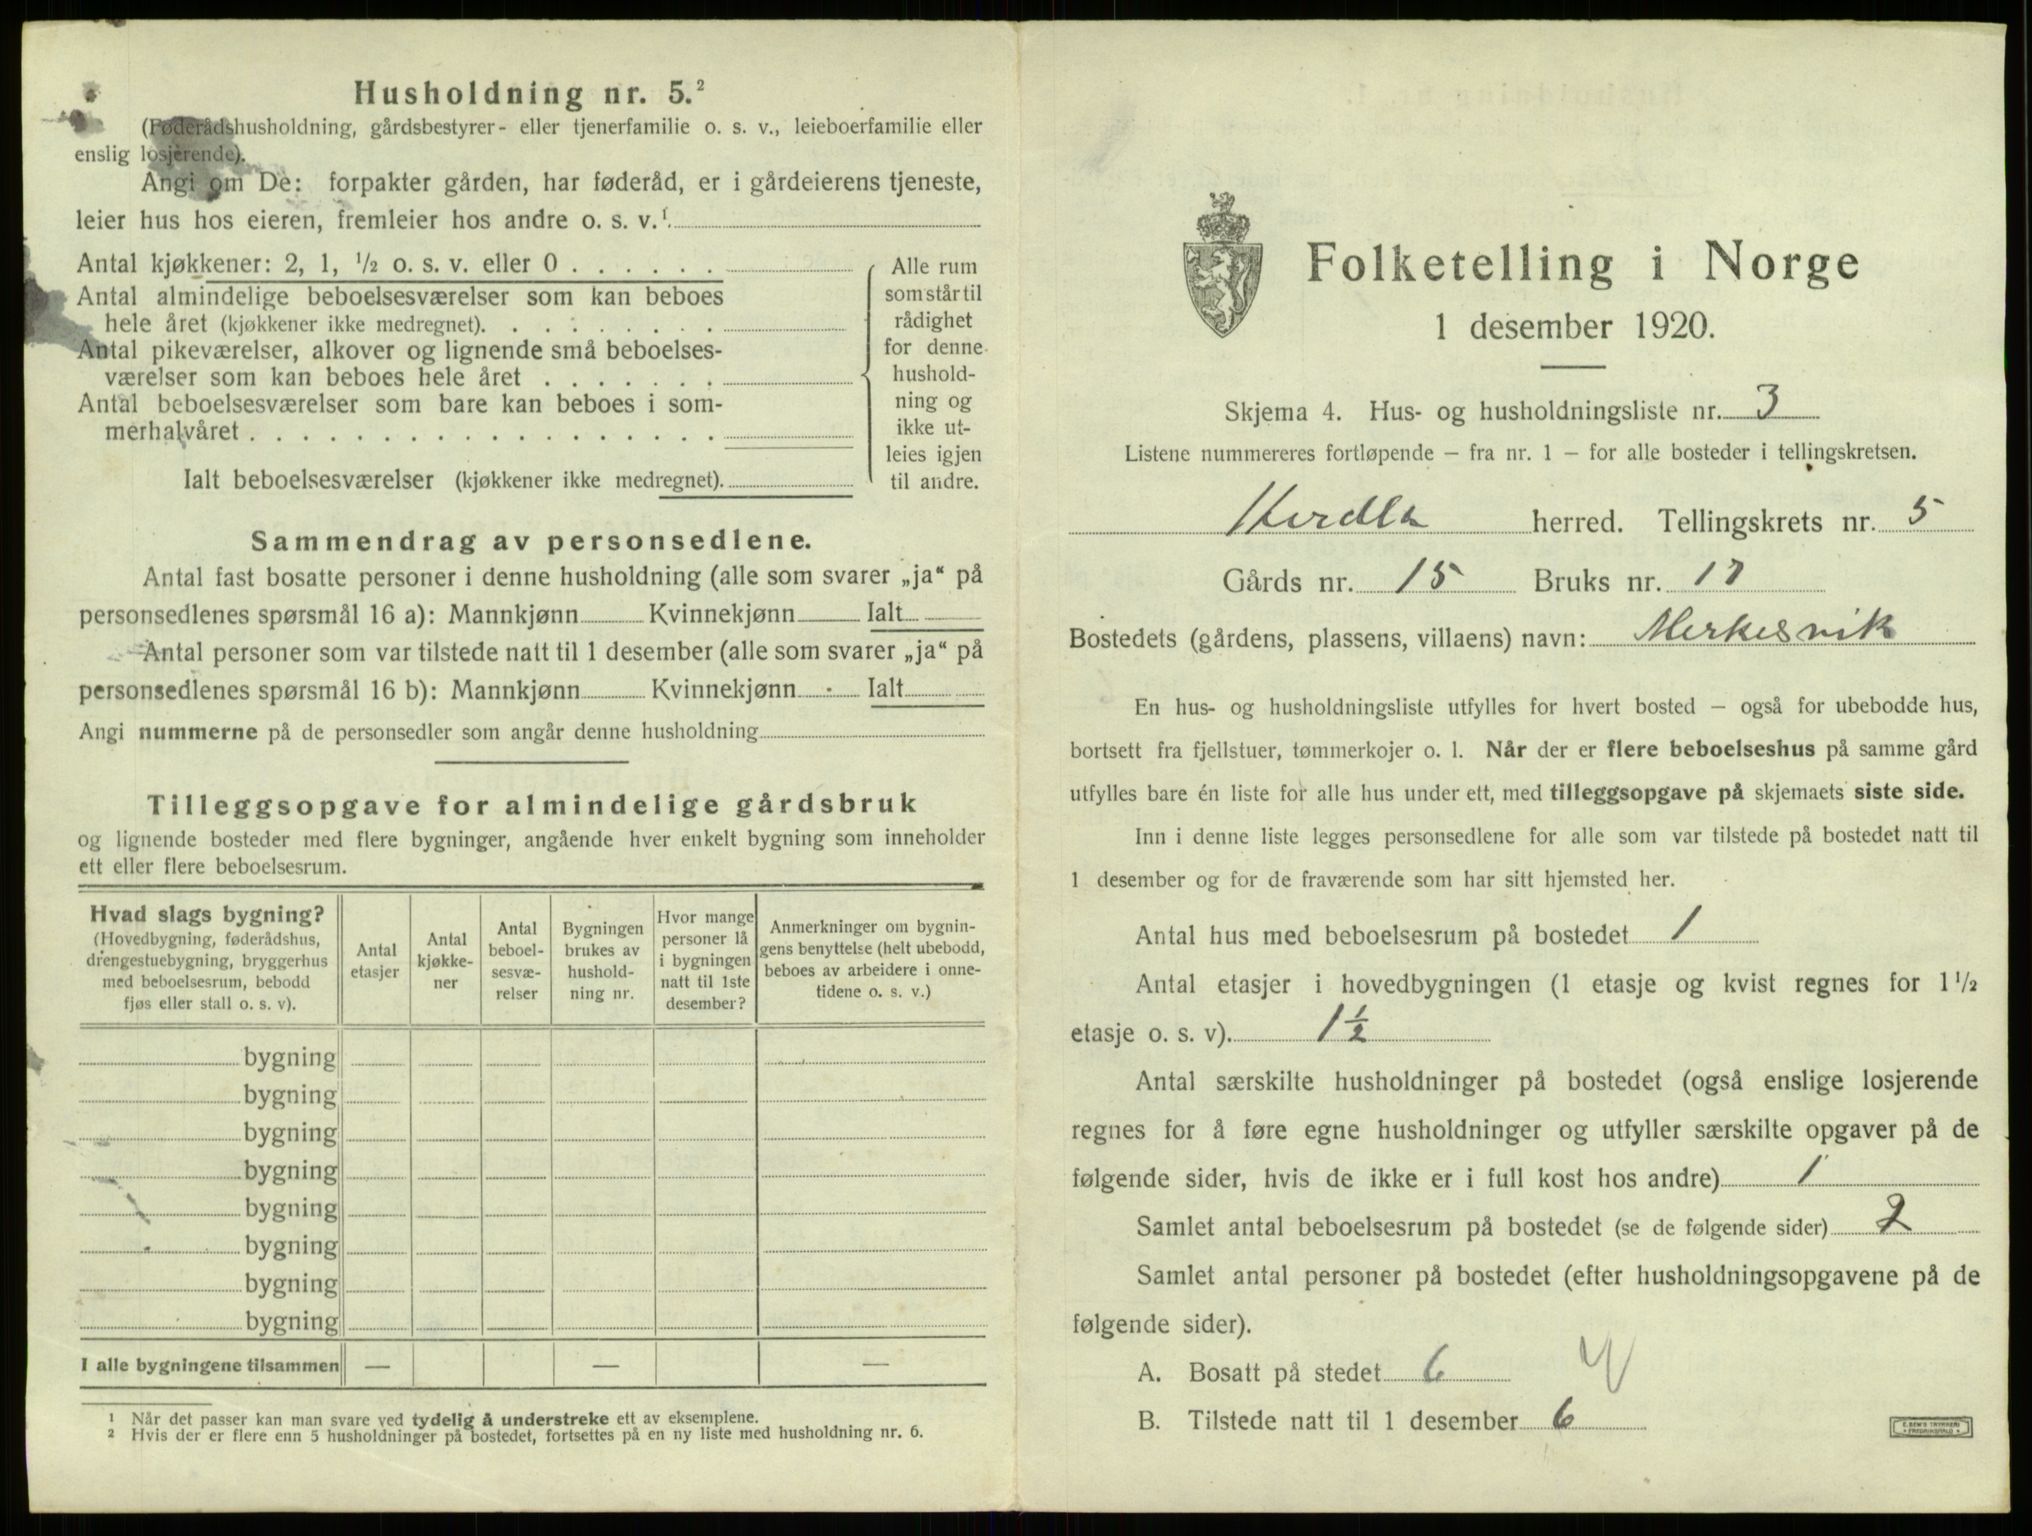 Husholdning nr. 5.²
(Føderådshusholdning, gårdsbestyrer- eller tjenerfamilie o. s. v., leieboerfamilie eller
enslig losjerende).
Angi om De: forpakter gården, har føderåd, er i gårdeierens tjeneste,
leier hus hos eieren, fremleier hos andre o. s. v.¹
Antal kjøkkener: 2, 1, ½ o. s. v. eller 0 . . . . . .
Antal almindelige beboelsesværelser som kan beboes
hele året (kjøkkener ikke medregnet). . . . . . . . .
Antal pikeværelser, alkover og lignende små beboelses-
værelser som kan beboes hele året . . . . . . .
Antal beboelsesværelser som bare kan beboes i som-
merhalvåret . . . . . . . . . . . . . . . . . .
Ialt beboelsesværelser (kjøkkener ikke medregnet).
Alle rum
som står til
rådighet
for denne
hushold-
ning og
ikke ut-
leies igjen
til andre.
Sammendrag av personsedlene.
Antal fast bosatte personer i denne husholdning (alle som svarer „ja“ på
personsedlenes spørsmål 16 a): Mannkjønn Kvinnekjønn Ialt
Antal personer som var tilstede natt til 1 desember (alle som svarer „ja“ på
personsedlenes spørsmål 16 b): Mannkjønn Kvinnekjønn Ialt
Angi nummerne på de personsedler som angår denne husholdning
Tilleggsopgave for almindelige gårdsbruk
og lignende bosteder med flere bygninger, angående hver enkelt bygning som inneholder
ett eller flere beboelsesrum.
Hvad slags bygning?
(Hovedbygning, føderådshus,
drengestuebygning, bryggerhus
med beboelsesrum, bebodd
fjøs eller stall o. s. v).
Antal
etasjer
Antal
kjøkke-
ner
Antal
beboel-
sesvæ-
relser
Bygningen
brukes av
hushold-
ning nr.
Hvor mange
personer lå
i bygningen
natt til 1ste
desember?
Anmerkninger om bygnin-
gens benyttelse (helt ubebodd,
beboes av arbeidere i onne-
tidene o. s. v.)
bygning
bygning
bygning
bygning
bygning
bygning
bygning
bygning
I alle bygningene tilsammen — — —
¹ Når det passer kan man svare ved tydelig å understreke ett av eksemplene.
² Hvis der er flere enn 5 husholdninger på bostedet, fortsettes på en ny liste med husholdning nr. 6.
Folketelling i Norge
1 desember 1920.
Skjema 4. Hus- og husholdningsliste nr. 3
Listene nummereres fortløpende – fra nr. 1 – for alle bosteder i tellingskretsen.
Herdla herred. Tellingskrets nr. 5
Gårds nr. 15 Bruks nr. 17
Bostedets (gårdens, plassens, villaens) navn: Merkesvik
En hus- og husholdningsliste utfylles for hvert bosted – også for ubebodde hus,
bortsett fra fjellstuer, tømmerkojer o. l. Når der er flere beboelseshus på samme gård
utfylles bare én liste for alle hus under ett, med tilleggsopgave på skjemaets siste side.
Inn i denne liste legges personsedlene for alle som var tilstede på bostedet natt til
1 desember og for de fraværende som har sitt hjemsted her.
Antal hus med beboelsesrum på bostedet 1
Antal etasjer i hovedbygningen (1 etasje og kvist regnes for 1 ½
etasje o. s. v). 1 ½
Antal særskilte husholdninger på bostedet (også enslige losjerende
regnes for å føre egne husholdninger og utfyller særskilte opgaver på de
følgende sider, hvis de ikke er i full kost hos andre) 1
Samlet antal beboelsesrum på bostedet (se de følgende sider) 2
Samlet antal personer på bostedet (efter husholdningsopgavene på de
følgende sider).
A. Bosatt på stedet 6
B. Tilstede natt til 1 desember 6